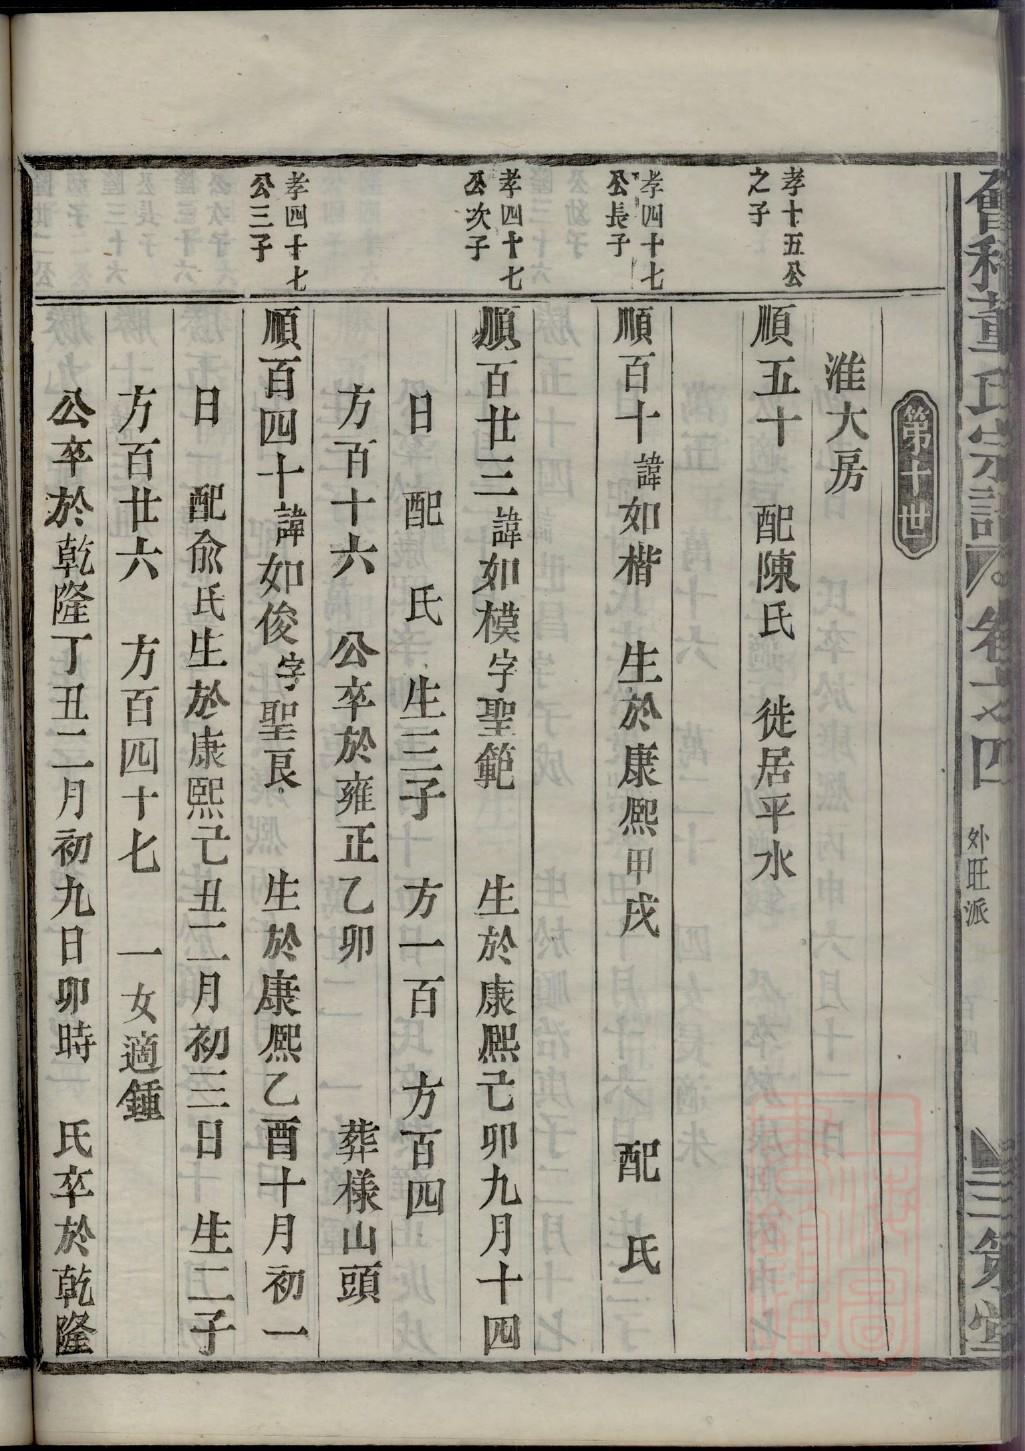 董氏宗譜 卷之四 外旺派 三策堂
第十世
淮大房
孝十五公
之子
順五十 配陳氏 徙居平水
孝四十七
公長子
順百十諱如楷 生於康熙甲戌 配 氏
孝四十七
公次子
順百廿三諱如模字聖範 生於康熙己卯九月十四
日 配 氏 生三子 方一百 方百四
方百十六 公卒於雍正乙卯 葬樣山頭
孝四十七
公三子
順百四十諱如俊字聖良 生於康熙乙酉十月初一
日 配俞氏生於康熙己丑二月初三日 生二子
方百廿六 方百四十七 一女適鍾
公卒於乾隆丁丑二月初九日卯時 氏卒於乾隆